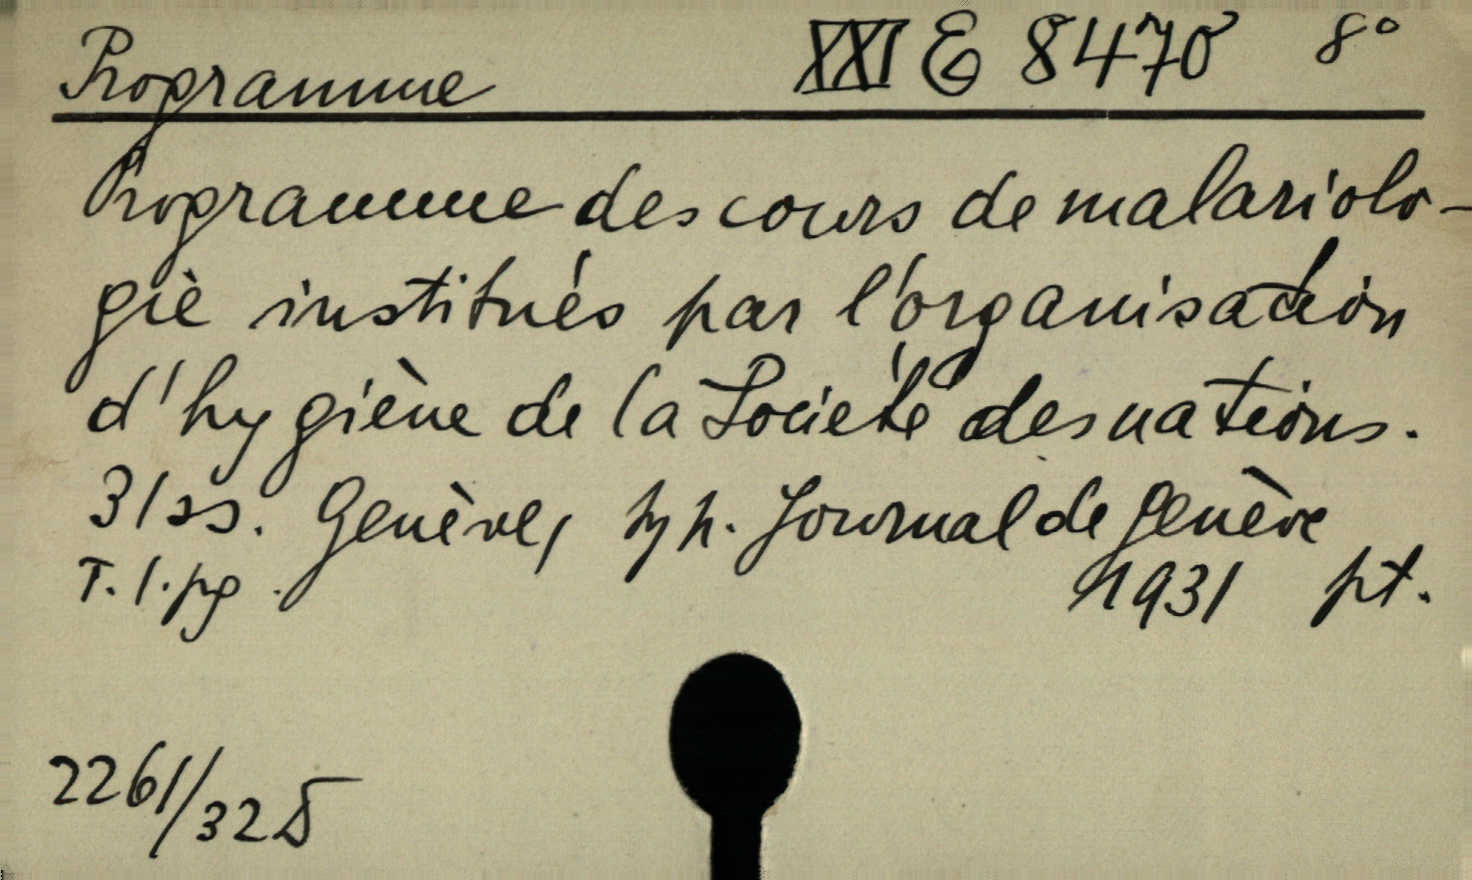 Programme XXI E 8470 8°
Programme des cours de malariolo-
gie institués par l'organisation
d'hygiène de la Société des nations.
31 ss. Genève, typ. Journal de Genève
T. l. pg. 1931 pt.
2261/32 D